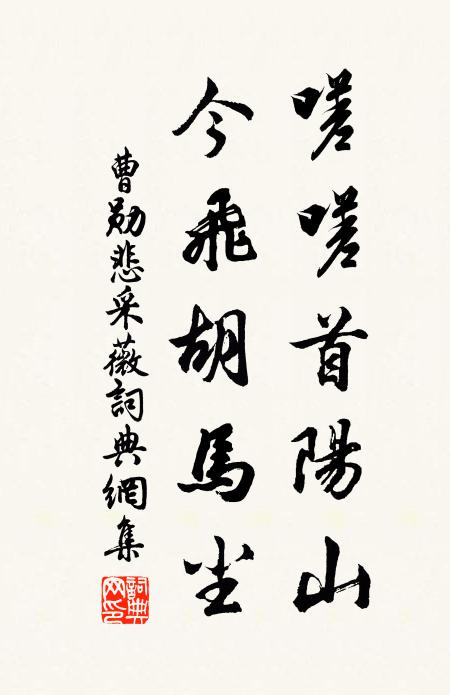 嗟嗟首陽山
今飛胡馬尘
曹勛悲采薇詞典網集
詞典网印